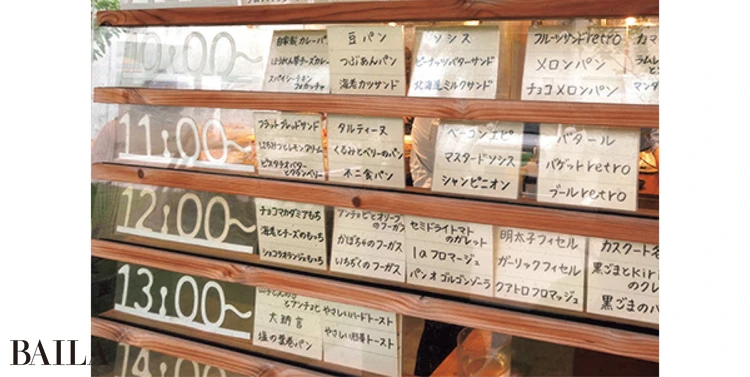 10:00~
自家製カレーパン
ほうれん草チーズカレー
スパイシーチキン
フォカッチャ
豆パン
つぶあんパン
海老カツサンド
ソシス
ピーナッツバターサンド
北海道ミルクサンド
フルーツサンドretro
メロンパン
チョコメロンパン
11:00~
フラットブレッドサンド
はちみつとレモンクリーム
ピスタチオバター
とクランベリー
タルティーヌ
くるみとベリーのパン
木ニ食パン
ベーコンエピ
マスタードソシス
シャンピニオン
バタール
バゲットretro
ブールretro
12:00~
チョコマカダミアもち
海老とチーズのもっち
ショコラオランジュもち
アンチョビとオリーブ
のフーガス
かぼちゃのフーガス
いちぢくのフーガス
セミドライトマト
のガレット
1aフロマージュ
パンオゴルゴンゾーラ
明太子フィセル
ガーリックフィセル
クアトロフロマッジュ
カスクート
黒ごまとkiri
のクレ
黒ごまのハ
13:00~
とアンチョビ
大納言
塩の葉巻パン
やさしいハードトースト
やさしい山形トースト
14:00~
BAILA